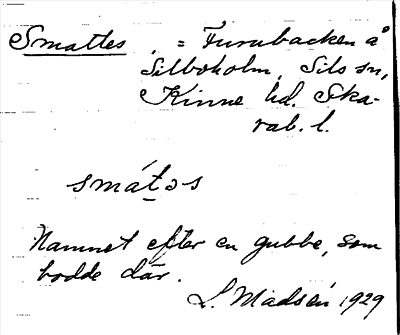 Smattes, = Furubacken å
Silboholm, Sils sn,
Kinne hd. Ska-
rab. l.
smát̠əs
Namnet efter en gubbe, som
bodde där.
L. Madsén 1929